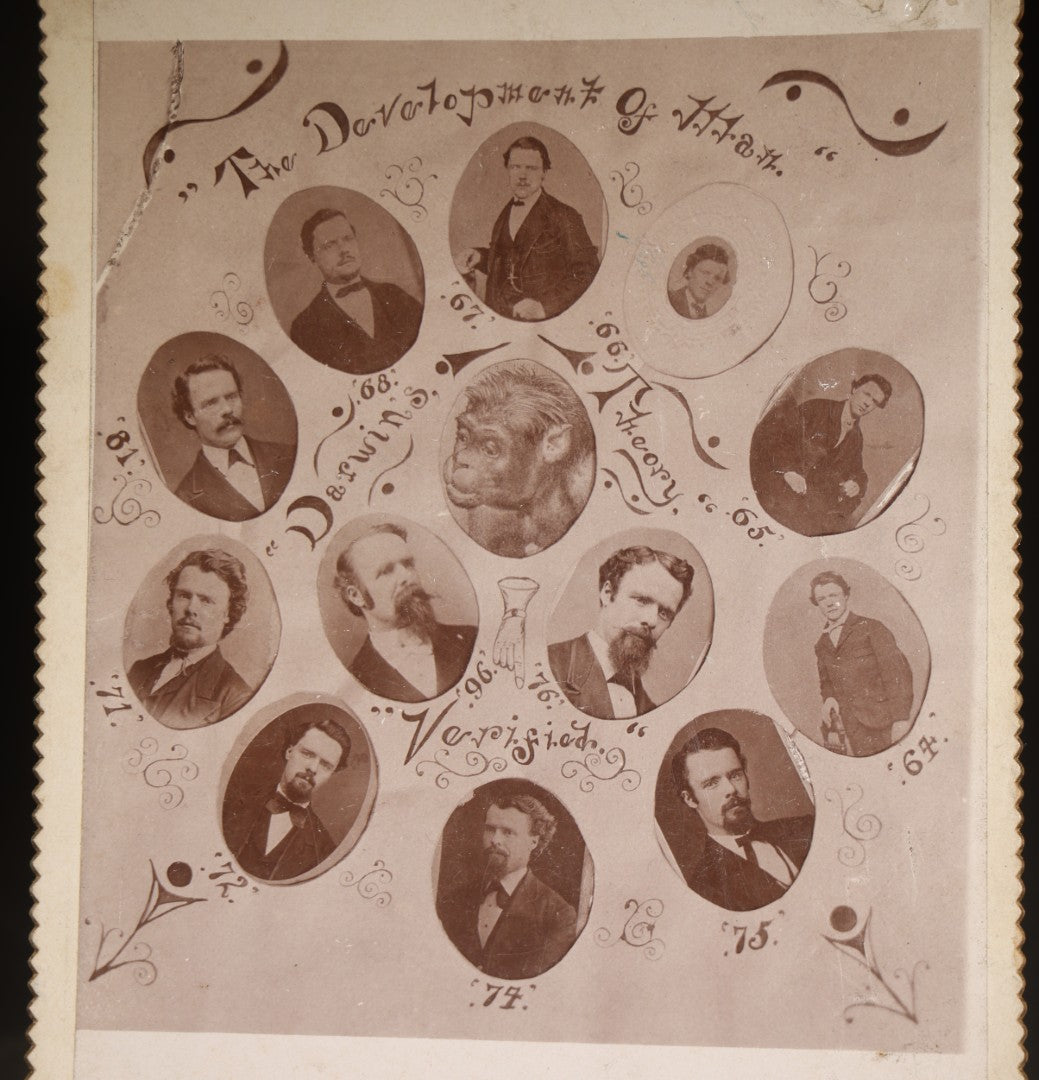 "The Development Of Man."
'67.'
'66.'
'68.'
"Darwin's,
Theory,"
'81.'
'65.'
'96.'
'76.'
'71.'
"Verified."
'64.'
'72.'
'75.'
'74.'